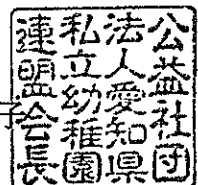 公益社団
法人愛知県
私立幼稚園
連盟会長
子